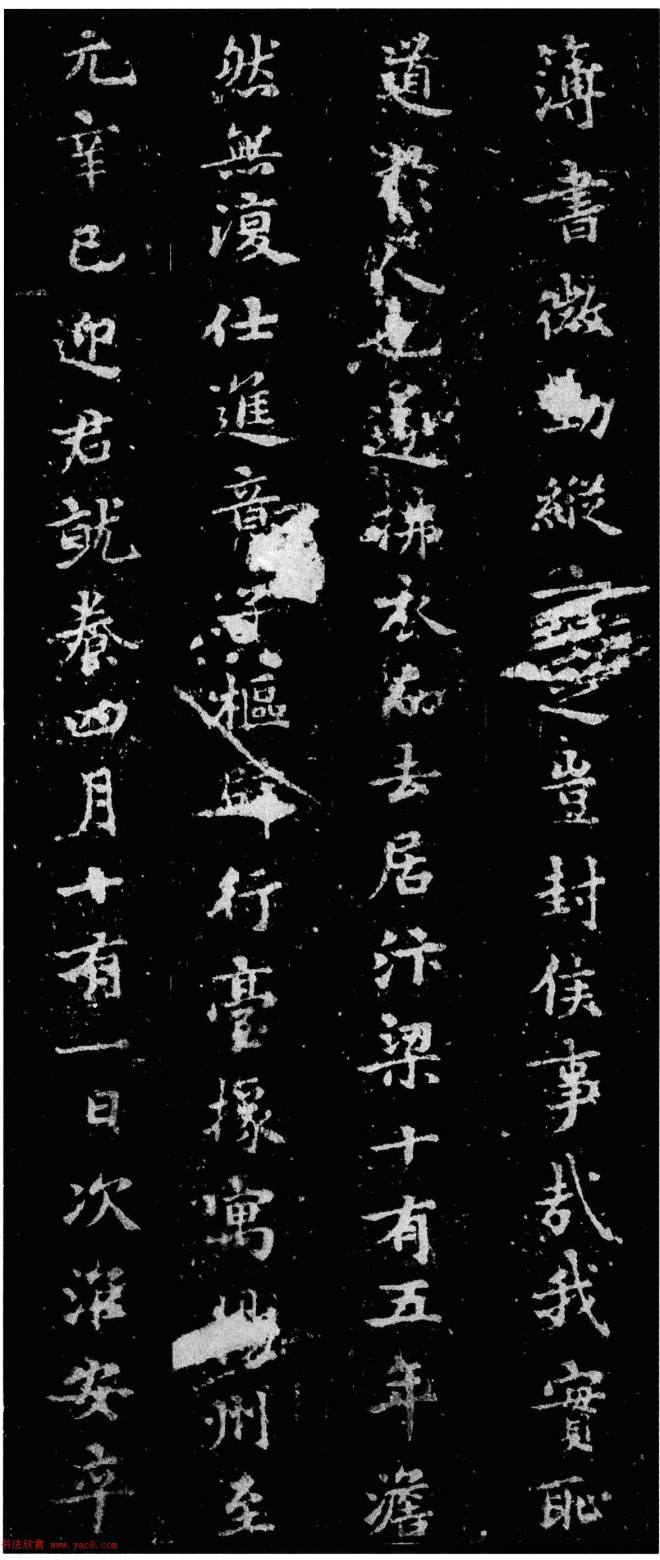 簿書微勳縱之豈封侯事哉我實恥
道也遂拂衣而去居汴梁十有五年澹
然無復仕進意子樞辟行臺掾寓揚州至
元辛巳迎君就養四月十有一日次淮安卒
书法欣赏 www.yac8.com